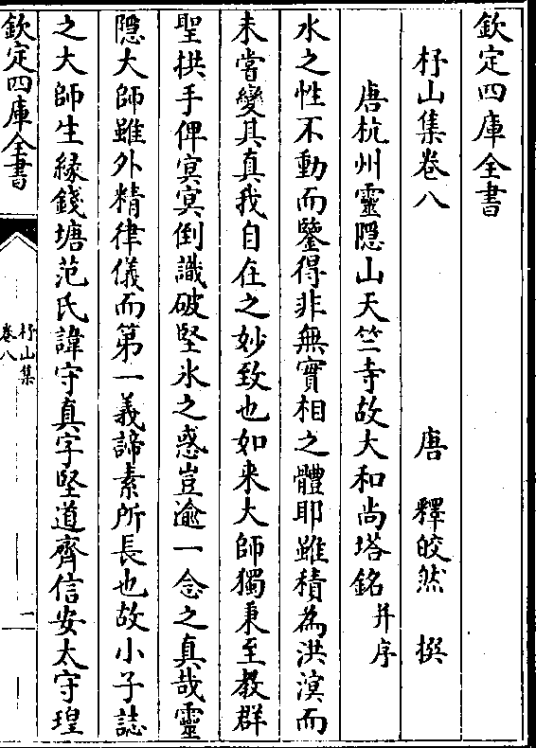 欽定四庫全書
杼山集卷八
唐 釋皎然 撰
唐杭州靈隱山天竺寺故大和尚塔銘并序
水之性不動而鑒得非無實相之體耶雖積為洪溟而
未嘗變其真我自在之妙致也如来大師獨秉至教群
聖拱手俾冥冥倒識破堅氷之惑豈逾一念之真哉靈
隱大師雖外精律儀而第一義諦素所長也故小子誌
之大師生縁錢塘范氏諱守真字堅道齊信安太守瑝
欽定四庫全書
杼山集
卷八
二